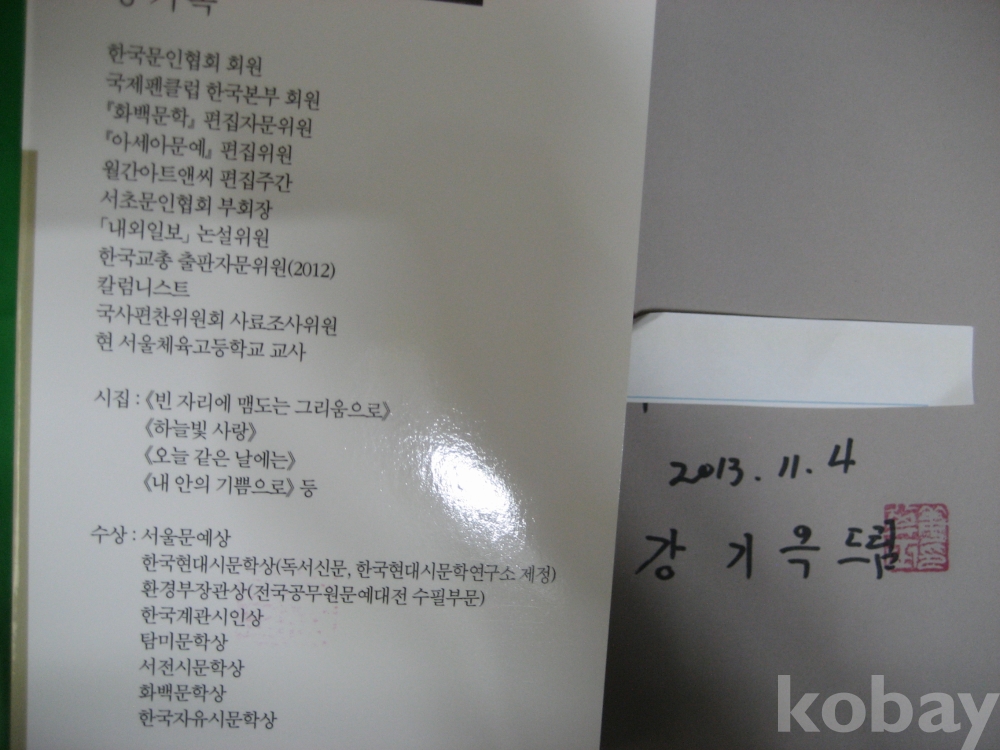 강기옥
한국문인협회 회원
국제펜클럽 한국본부 회원
『화백문학』 편집자문위원
『아세아문예』 편집위원
월간아트앤씨 편집주간
서초문인협회 부회장
「내외일보」 논설위원
한국교총 출판자문위원(2012)
칼럼니스트
국사편찬위원회 사료조사위원
현 서울체육고등학교 교사
시집 : 《빈 자리에 맴도는 그리움으로》
《하늘빛 사랑》
《오늘 같은 날에는》
《내 안의 기쁨으로》 등
수상 : 서울문예상
한국현대시문학상(독서신문, 한국현대시문학연구소 제정)
환경부장관상(전국공무원문예대전 수필부문)
한국계관시인상
탐미문학상
서전시문학상
화백문학상
한국자유시문학상
2013. 11. 4
강기옥 드림
kobay